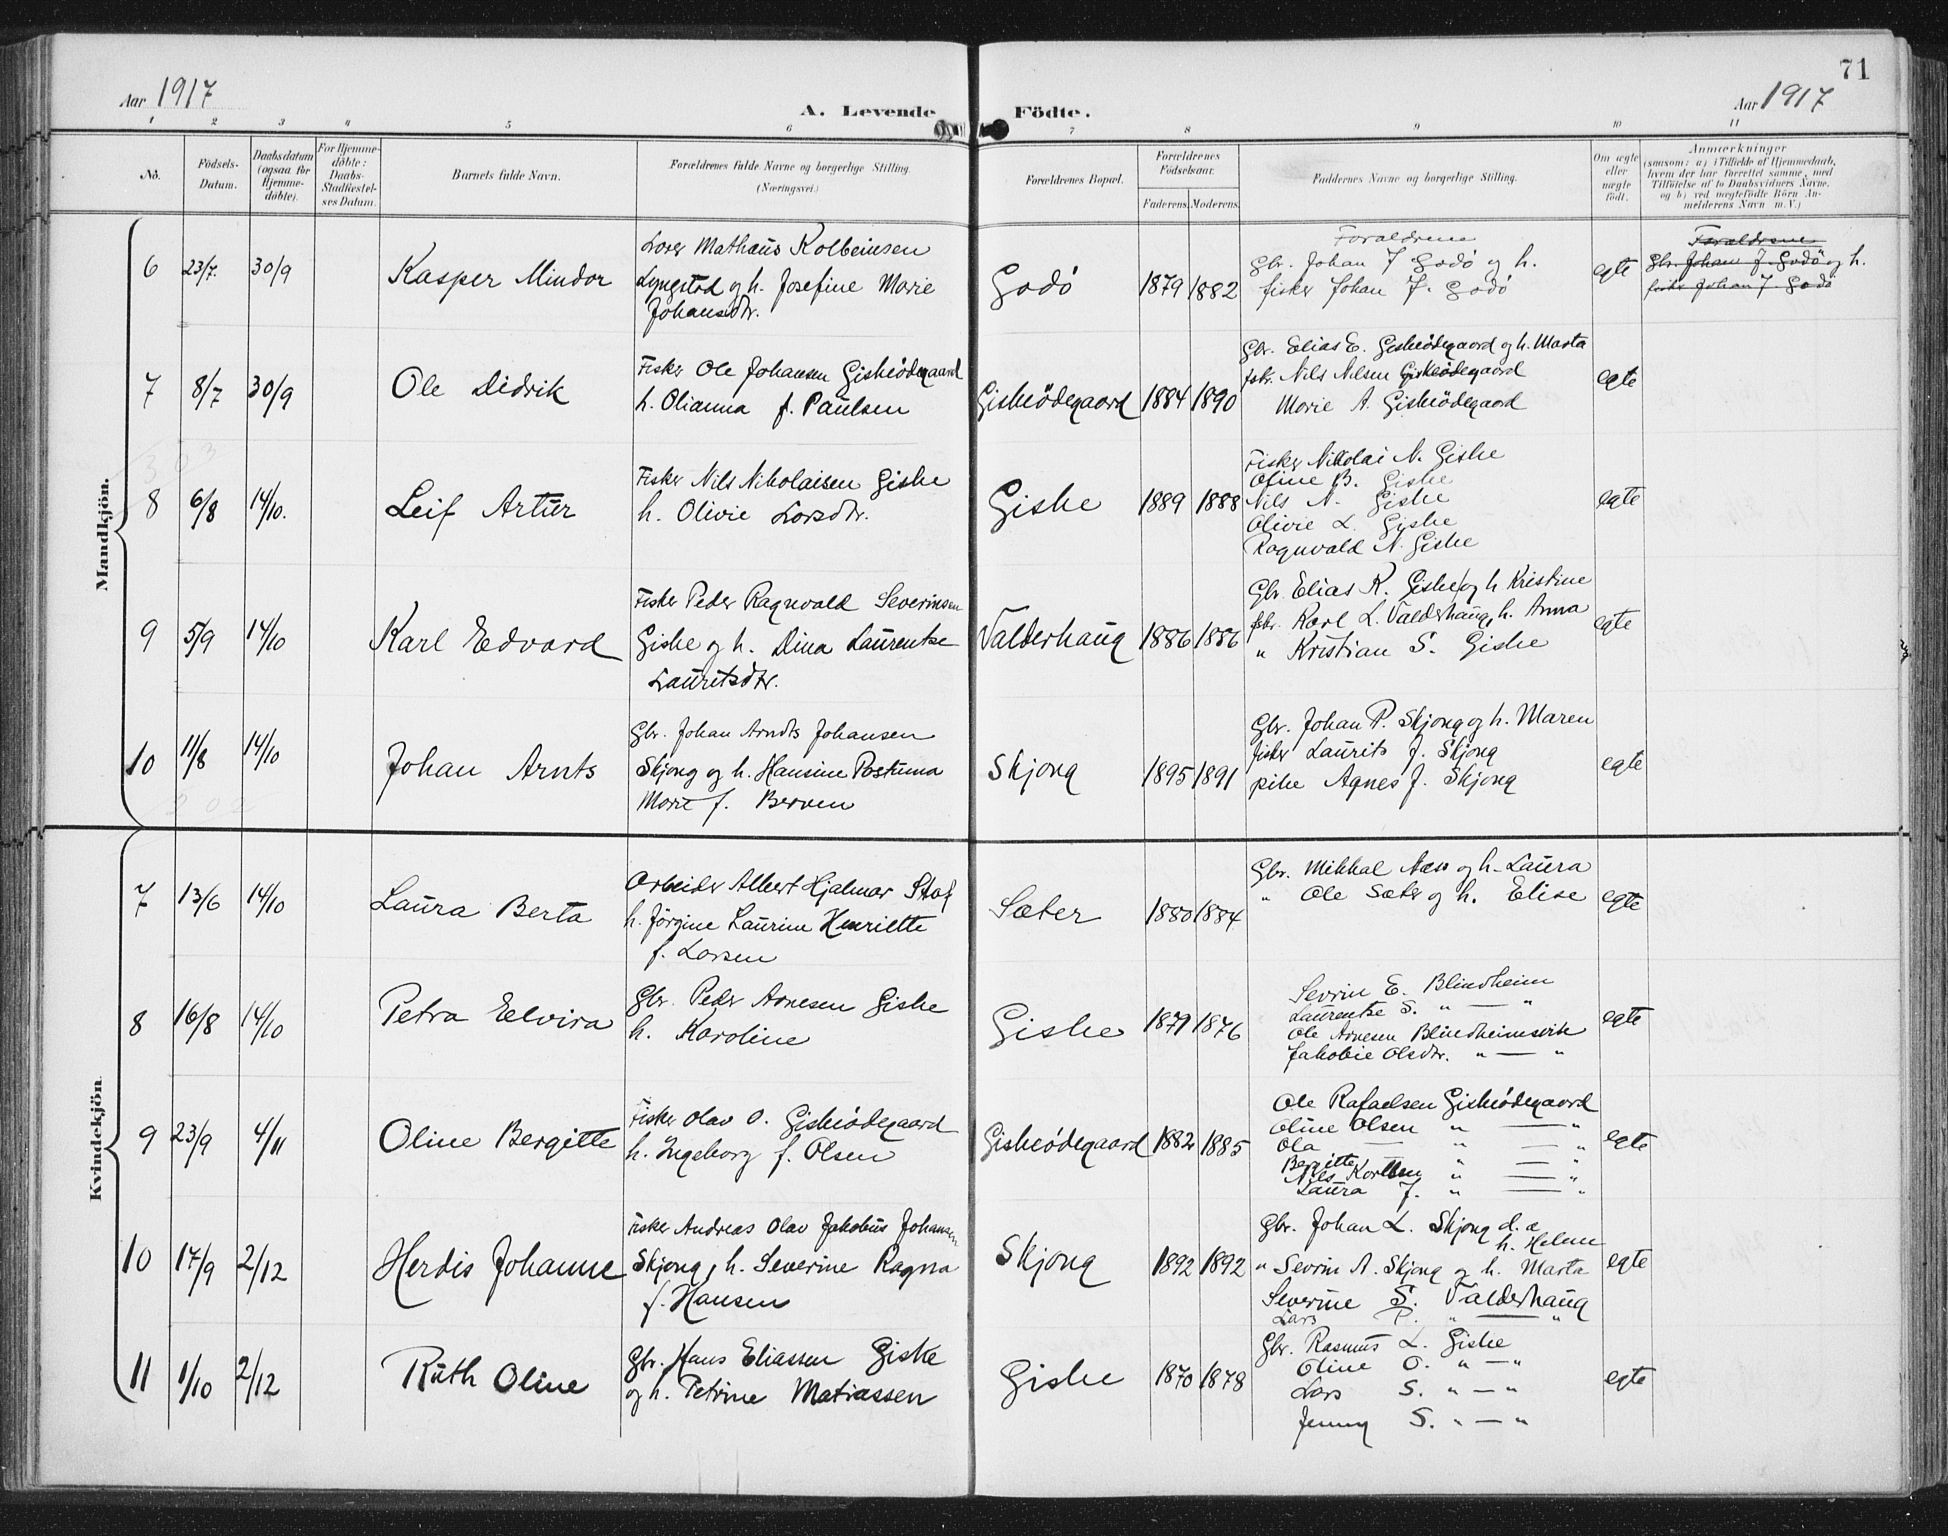 71
Aar 1917
A. Levende Födte.
Aar 1917
1 2 3 4 5 6 7 8 9 10 11
No.
Födsels-
Datum.
Daabsdatum
(ogsaa for
Hjemme-
døbte).
For Hjemme-
døbte:
Daabs-
Stadfæstel-
ses Datum.
Barnets fulde Navn.
Forældrenes fulde Navne og borgerlige Stilling.
(Næringsvei.)
Forældrenes Bopæl.
Forældrenes
Födselsaar.
Faderens. Moderens.
Faddernes Navne og borgerlige Stilling.
Om ægte
eller
uægte
födt.
Anmærkninger
(saasom: a) i Tilfælde af Hjemmedaab,
hvem der har forrettet samme, med
Tilföielse af to Daabsvidners Navne.
og b) ved uægtefödte Börn An-
melderens Navn m. V.)
Mandkjön.
6 23/7. 30/9 Kasper Mindor
Lars Mathäus Kolbeinsen
Lyngstad og h. Josefine Marie
Johansdtr.
Godö 1879 1882
Foraldrene
Gbr. Johan J Godö og h.
fisker Johan J. Godö
egte
Foraldrene
Gbr. Johan J. Godö og h.
fisker Johan J. Godö
7 8/7 30/9 Ole Didrik
Fisker Ole Johansen Giskeödegaard
h. Olianna f. Paulsen
Giskeödegaard 1884 1890
Gbr. Elias E. Giskeödegaard og h. Marta
fskr. Nils Nilsen Giskeödegaard
Marie A. Giskeödegaard
egte
8 6/8 14/10. Leif Artür
Fisker Nils Nikolaisen Giske
h. Olivie Larsdtr.
Giske 1889 1888
Fisker Nikolai N. Giske
Oline B. Giske
Nils N. Giske
Olivie L. Giske
Ragnvald N. Giske
egte
9 5/9 14/10 Karl Edvard
Fisker Peder Ragnvald Severinsen
Giske og h. Dina Laurentse
Lauritsdtr.
Valderhaug 1886 1886
Gbr. Elias K. Giske og h Kristine
fskr. Karl L. Valderhaug, h. Anna
" Kristian S. Giske
egte
10 11/8 14/10 Johan Arnts
Gbr. Johan Arndts Johansen
Skjong og h. Hansine Postuma
Marie f. Berven
Skjong 1895 1891
Gbr. Johan P. Skjong og h. Maren
fisker Laurits J. Skjong
pike Agnes J. Skjong
egte
Kvindekjön.
7 13/6 14/10 Laura Berta
Arbeider Albert Hjalmar
h. Jörgine Laurine Henriette
f. Larsen
Sæter 1880 1884
Gbr. Mikkal Næss og h. Laura
" Ole Sæter og h. Elise
egte
8 16/8 14/10 Petra Elvira
Gbr. Peder Arnesen Giske
h. Karoline
Giske 1879 1876
Sevrin E. Blindheim
Laurentse S. " — "
Ole Arnesen Blindheimsvik
Jakobie Olsdtr. " — "
egte
9 23/9 4/11 Oline Bergitte
Fisker Olav O. Giskeödegaard
h. Ingeborg f. Olsen
Giskeödegaard 1882 1885
Ole Rafaelsen Giskeödegaard
Oline Olsen " — "
Ola — " — "
Bergitte — " — "
Nils Karlsen " — "
Laura J. " — "
egte
10 17/9 2/12 Herdis Johanne
Fisker Andreas Olav Jakobus Johansen
Skjong, h. Severine Ragna
f. Hansen
Skjong 1892 1892
Gbr. Johan L. Skjong d. æ
h. Helene
" Sevrin A. Skjong og h. Marta
Severine S. Valderhaug
Lars P. " — "
egte
11 1/10 2/12 Ruth Oline
Gbr. Hans Eliassen Giske
og h. Petrine Matiassen
Giske 1870 1878
Gbr. Rasmus L. Giske
Oline O. " — "
Lars S. " — "
Jenny S. " — "
egte